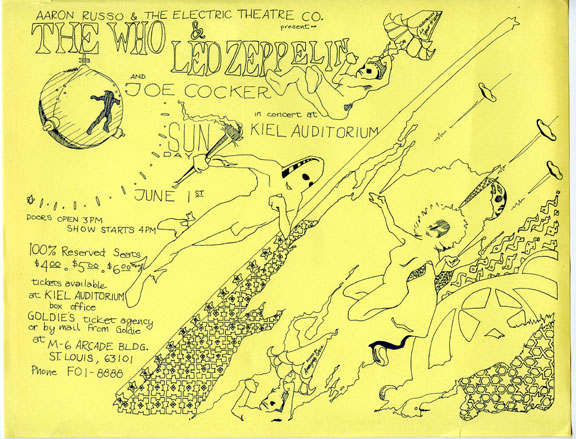 AARON RUSSO & THE ELECTRIC THEATRE CO.
present
THE WHO
&
LED ZEPPELIN
AND
JOE COCKER
in concert at
KIEL AUDITORIUM
SUN
DAY
JUNE 1ST
DOORS OPEN 3PM
SHOW STARTS 4PM
100% Reserved Seats
$4.00 $5.00 $6.00
tickets available
at KIEL AUDITORIUM
box office
GOLDIE'S ticket agency
or by mail from Goldie
at M-6 ARCADE BLDG.
ST. LOUIS, 63101
Phone FO1-8888